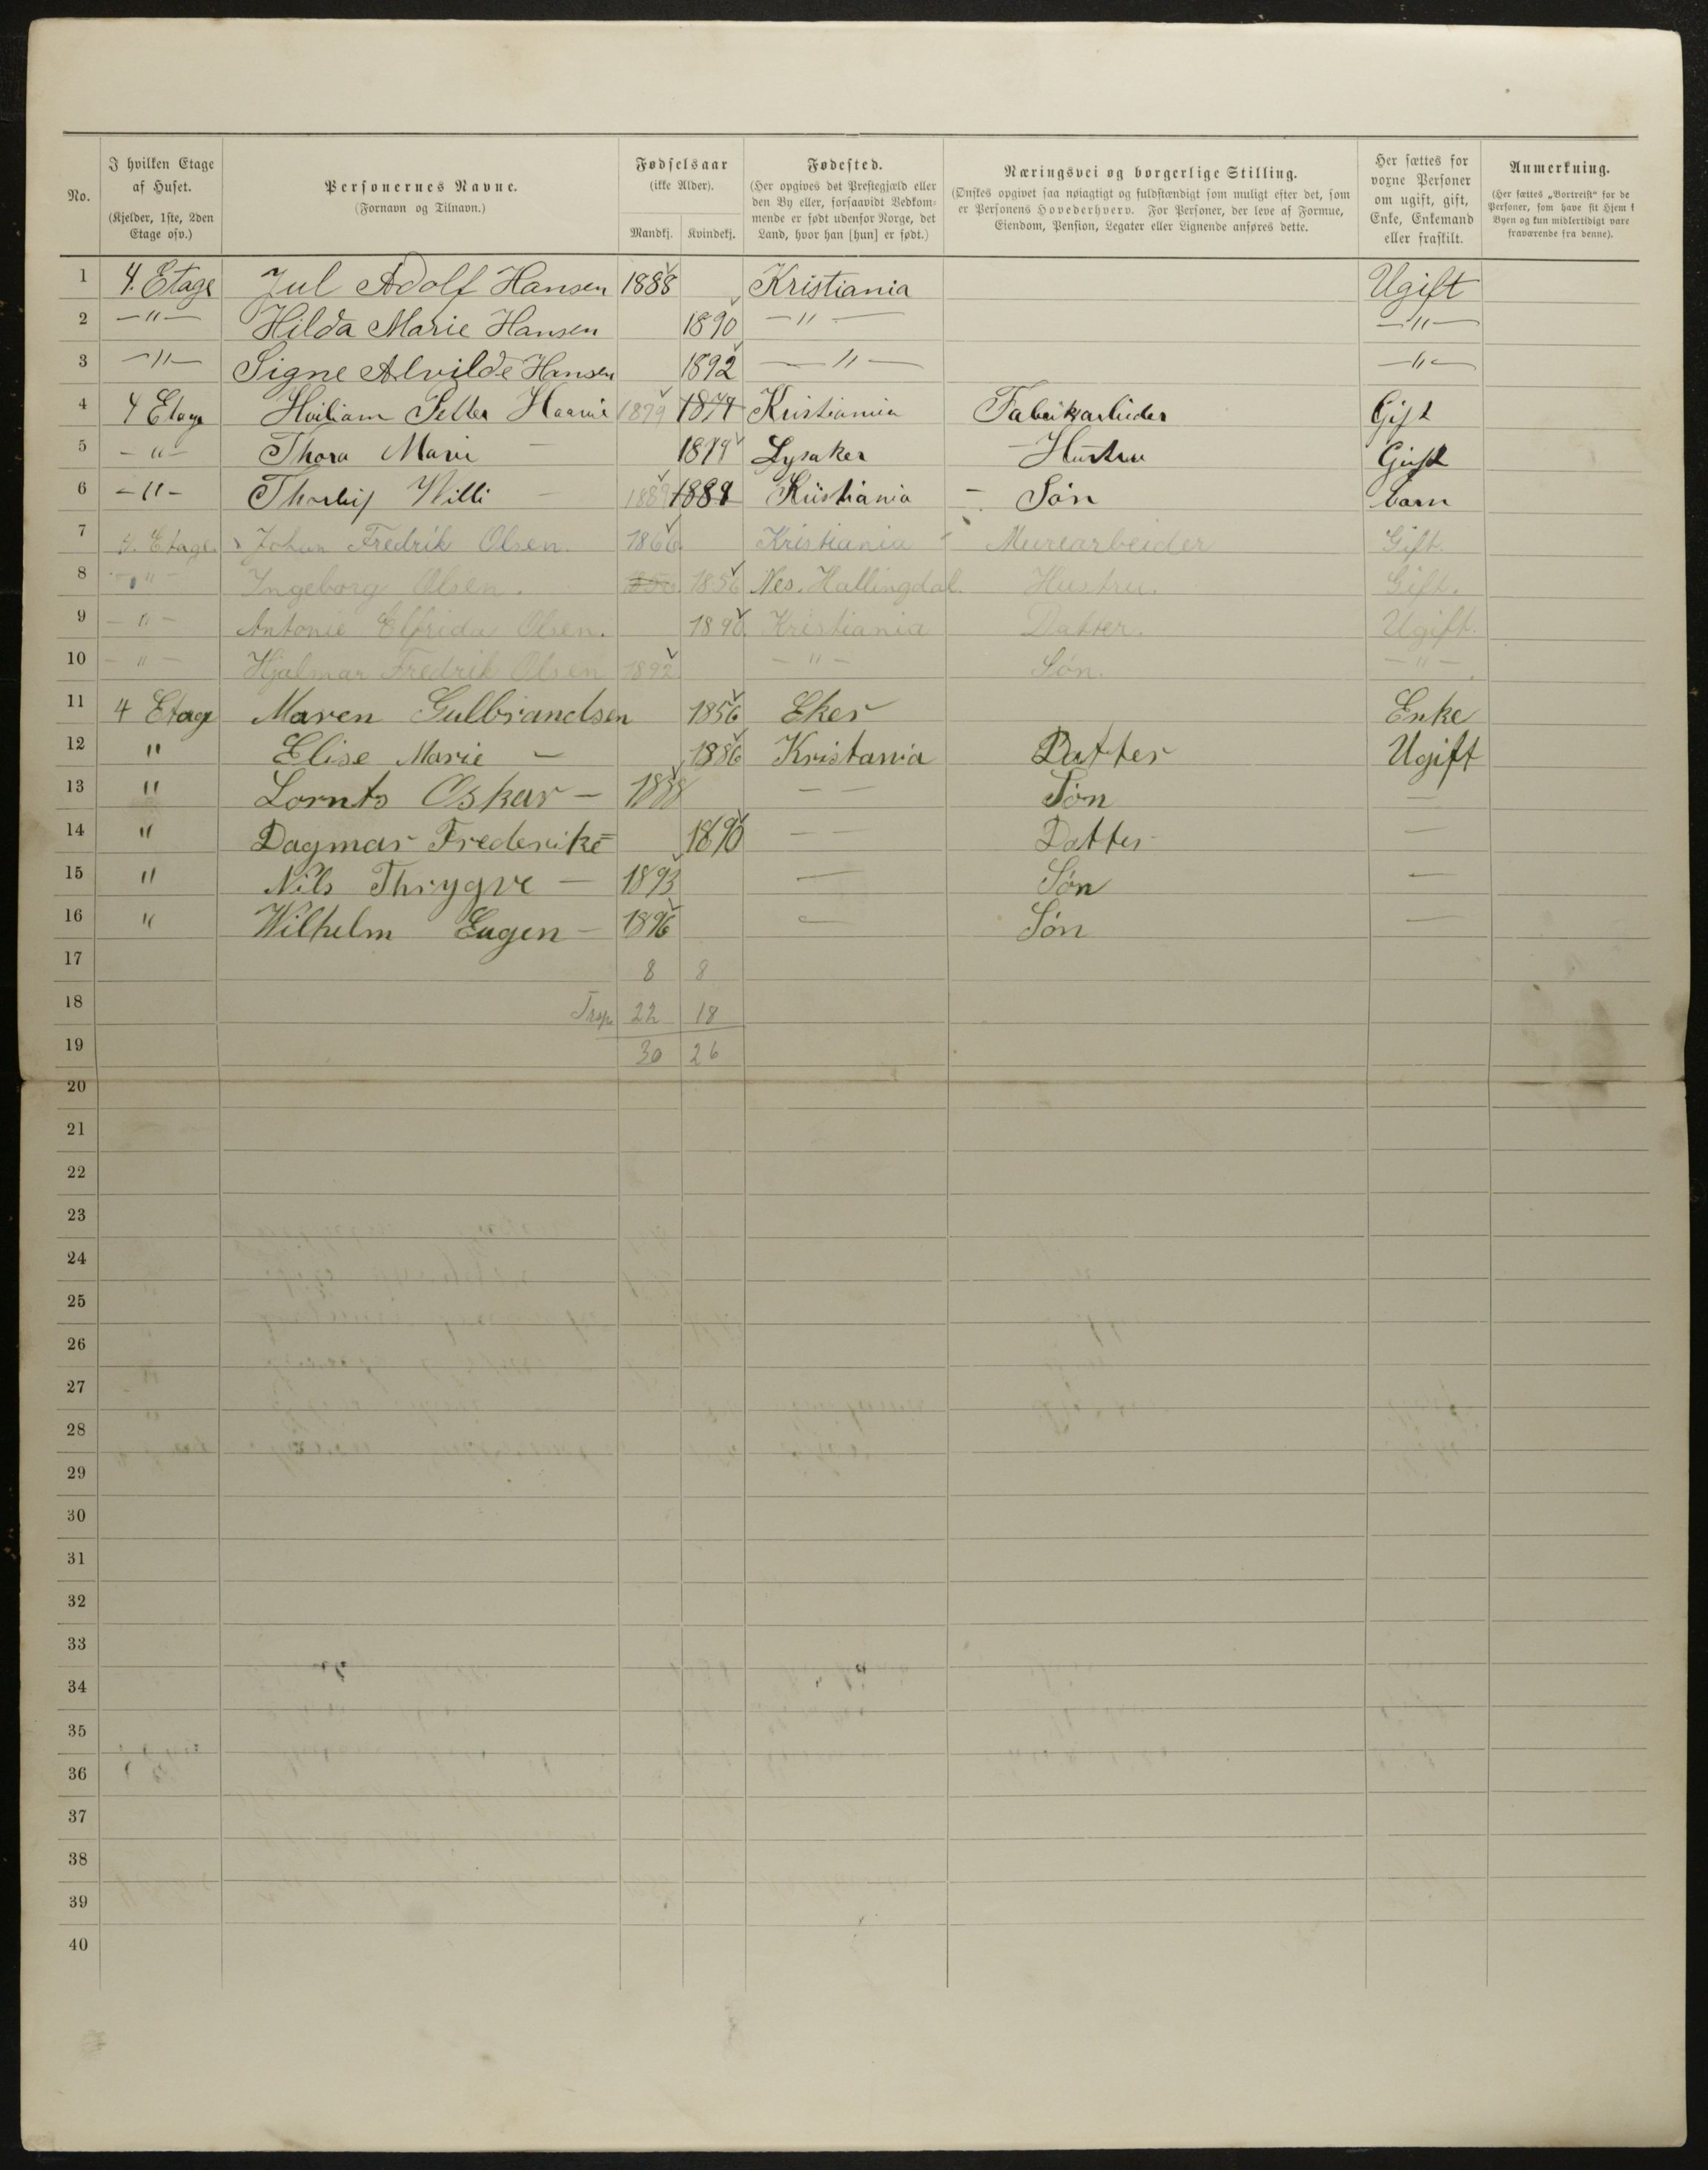 No.
I hvilken Etage af Huset.
(Kjelder, 1ste, 2den Etage osv.)
Personernes Navne.
(Fornavn og Tilnavn.)
Fødselsaar
(ikke Alder).
Mandkj. Kvindekj.
Fødested.
(Her opgives det Prestegjæld eller den By eller, forsaavidt Vedkommende er født udenfor Norge, det Land, hvor han [hun] er født.)
Næringsvei og borgerlige Stilling.
(Ønskes opgivet saa nøiagtigt og fuldstændigt som muligt efter det, som er Personens Hovederhverv. For Personer, der leve af Formue, Eiendom, Pension, Legater eller Lignende anføres dette.
Her sættes for voxne Personer om ugift, gift, Enke, Enkemand eller fraskilt.
Anmerkning.
(Her sættes „Bortreist" for de Personer, som have sit Hjem i Byen og kun midlertidigt vare fraværende fra denne).
1 4. Etage Jul Adolf Hansen 1888 Kristiania Ugift
2 —"— Hilda Marie Hansen 1890 —"— —"—
3 —"— Signe Alvilde Hansen 1892 —"— —"—
4 4 Etage Petter 1879 Kristiania Fabrikarbeider Gift
5 —"— Thora Marie — Lysaker — Hustru Gift
6 —"— Willi — 1889 Kristiania — Søn barn
7 4. Etage. Johan Fredrik Olsen. 1866 Kristiania Murearbeider Gift.
8 —"— Ingeborg Olsen. 1856 Nes. Hallingdal. Hustru. Gift.
9 —"— Antonie Elfrida Olsen. 1890 Kristiania Datter. Ugift.
10 —"— Hjalmar Fredrik Olsen 1892 —"— Søn. —"—
11 4 Etage Maren Gulbrandsen 1856 Eker Enke
12 " Elise Marie — 1886 Kristania Datter Ugift
13 " Lornts Oskar — 1888 — — Søn —
14 " Dagmar Frederike — 1890 — — Datter —
15 " Nils Thrygve — 1893 — Søn —
16 " Wilhelm Eugen — 1896 — Søn —
17 8 8
18 Trsp. 22 18
19 30 26
20
21
22
23
24
25
26
27
28
29
30
31
32
33
34
35
36
37
38
39
40